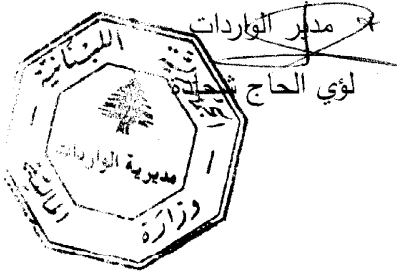 مدير الواردات
لؤي الحاج شحادة
الجمهورية اللبنانية
وزارة المالية
مديرية الواردات